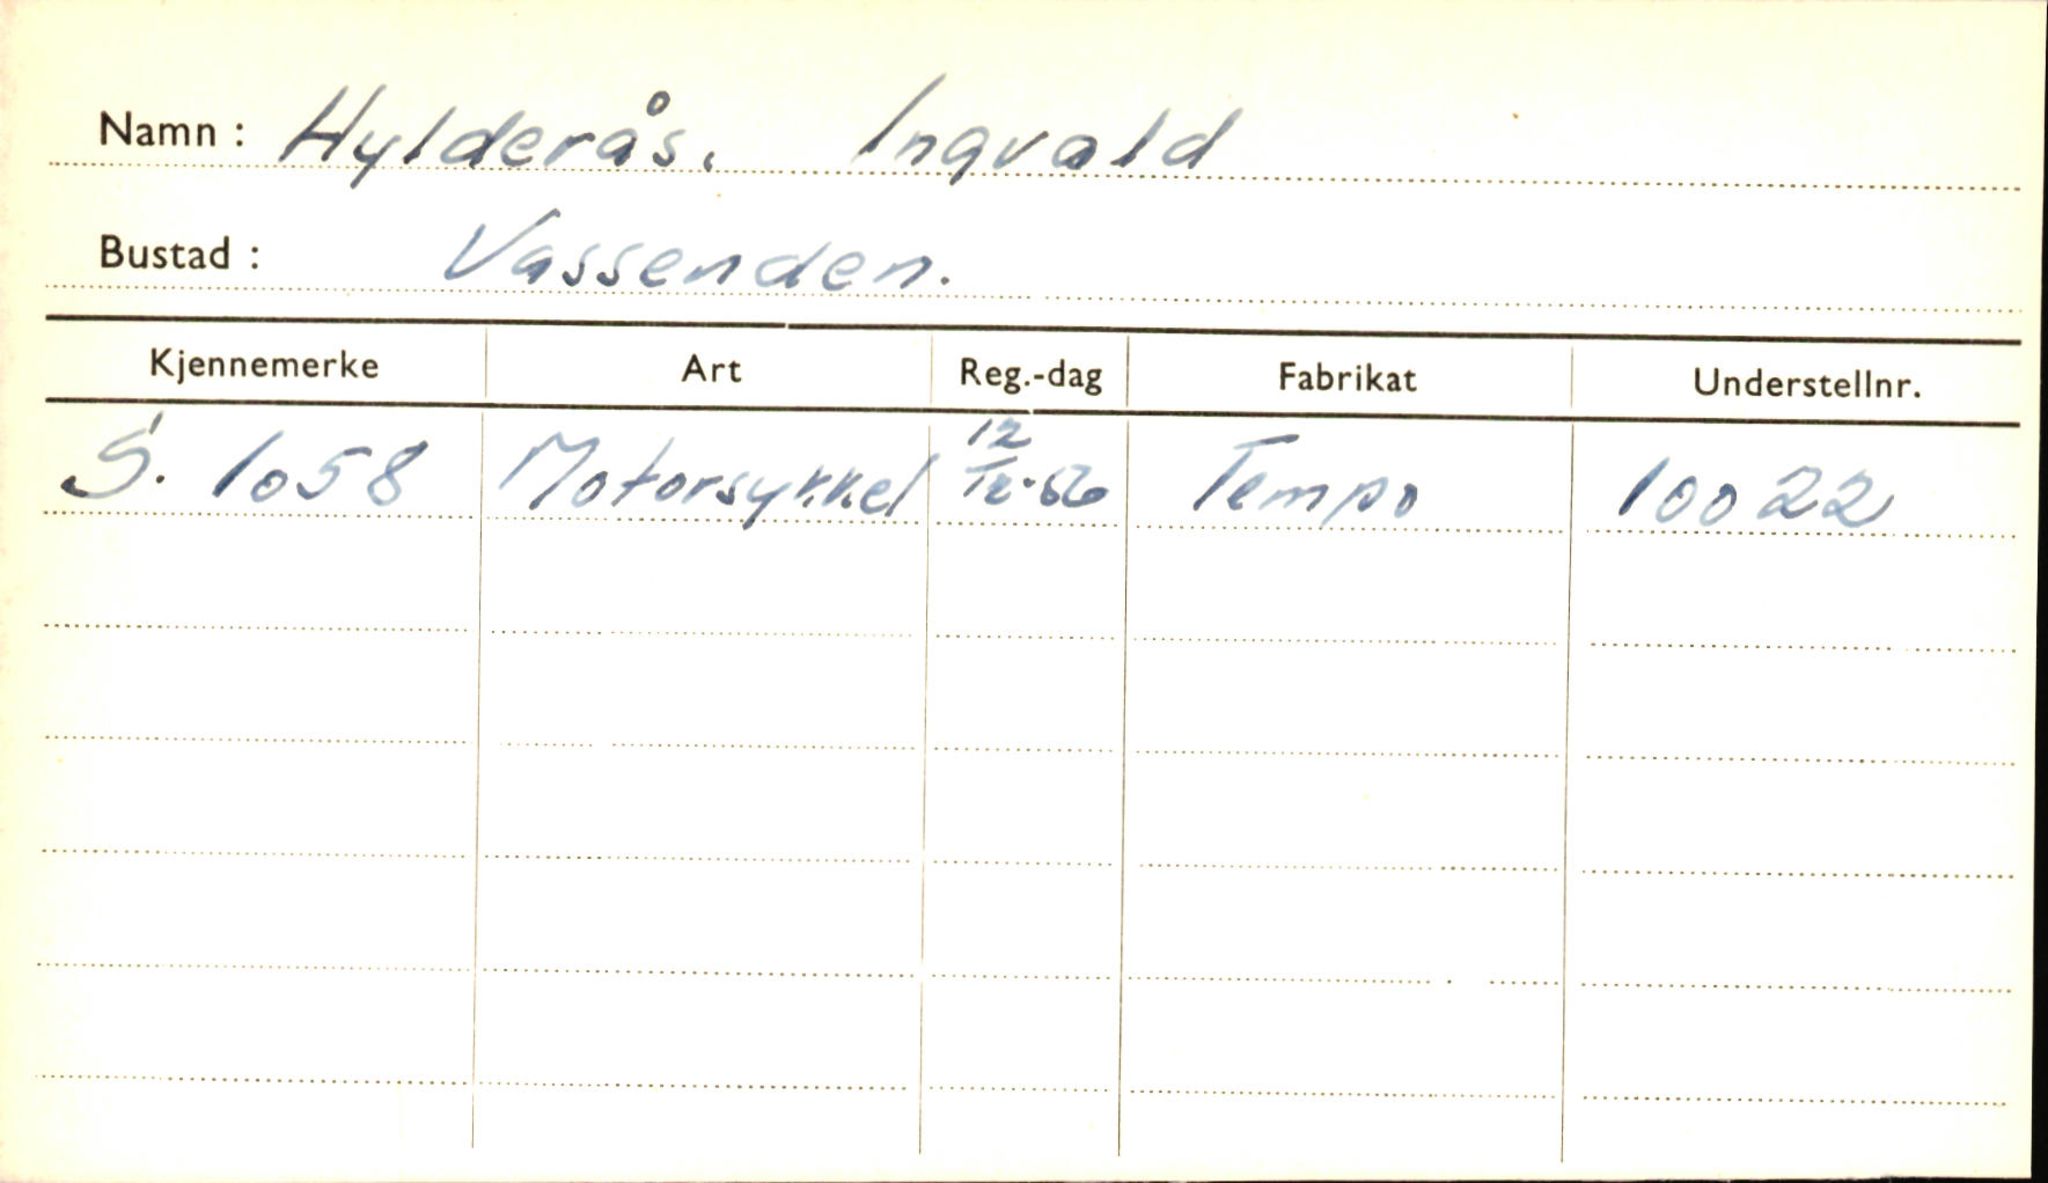 Namn : Hylderås, Ingvald
Bustad : Vassenden.
Kjennemerke Art Reg.-dag Fabrikat Understellnr.
S. 1058 Motorsykkel 12/12.56 Tempo 10022